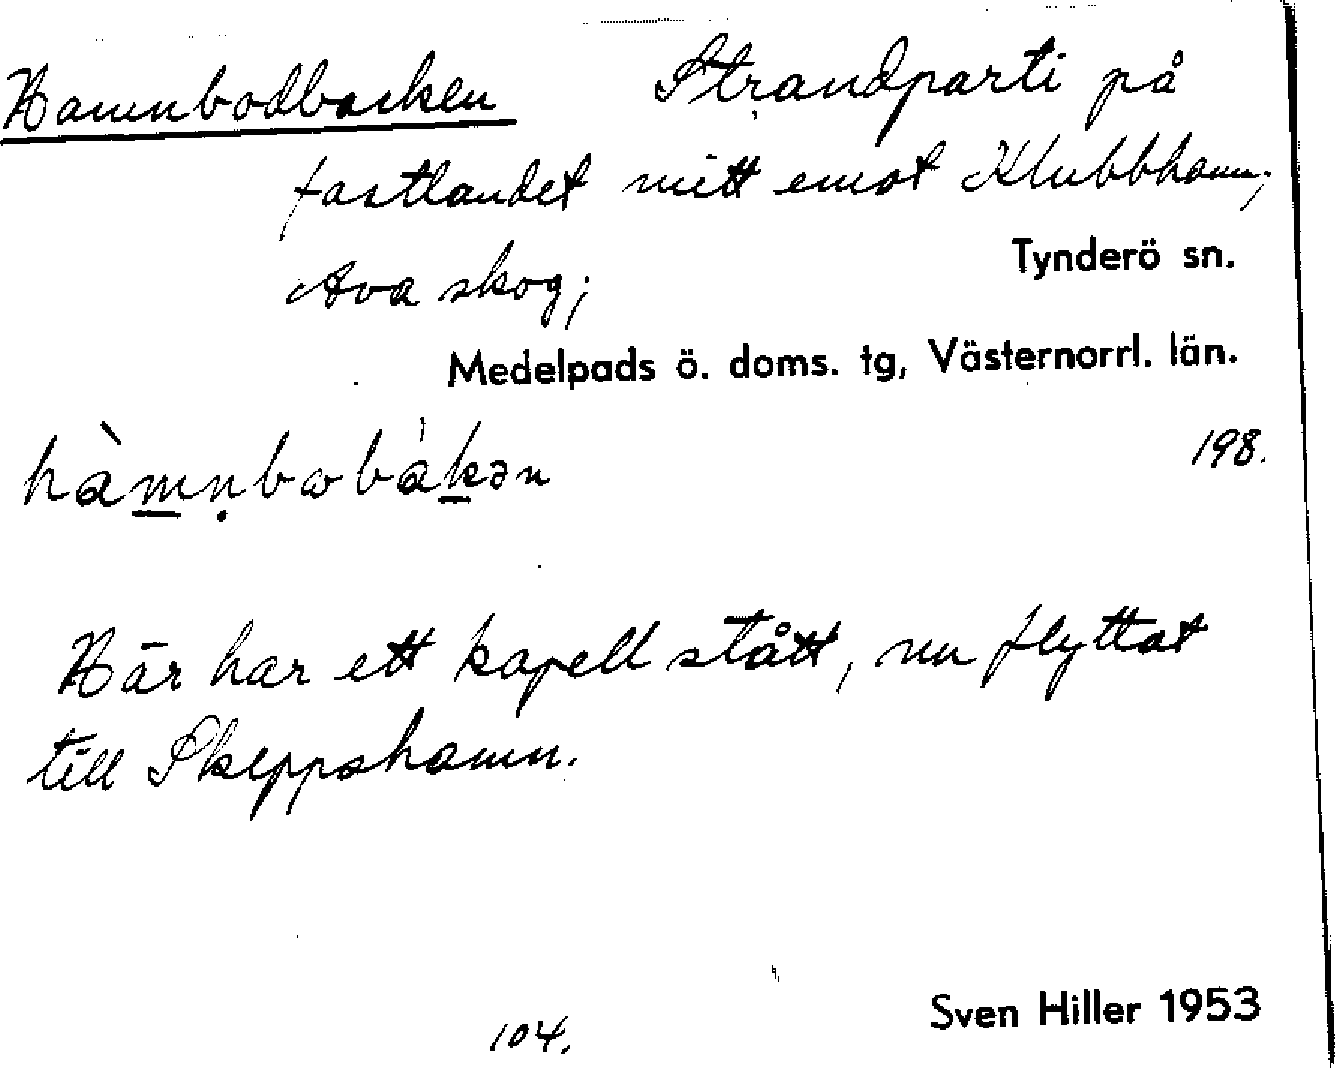 Hamnbodbacken Strandparti på
fastlandet mitt emot Klubbhamn;
Ava skog;
Tynderö sn.
Medelpads ö. doms. tg, Västernorrl. län.
hàmṇbωbákən
198.
Här har ett kapell stått, nu flyttat
till Skeppshamn.
Sven Hiller 1953
104.